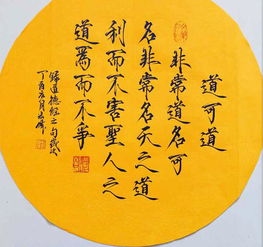 道可道
非常道名可
名非常名天之道
利而不害聖人之
道為而不爭
歸道德經之句武汶
丁酉年月